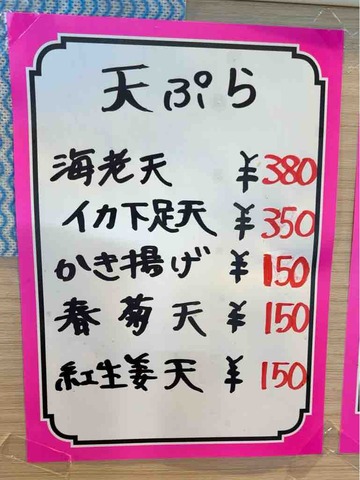 天ぷら
海老天 ¥380
イカ下足天 ¥350
かき揚げ ¥150
春菊天 ¥150
紅生姜天 ¥150